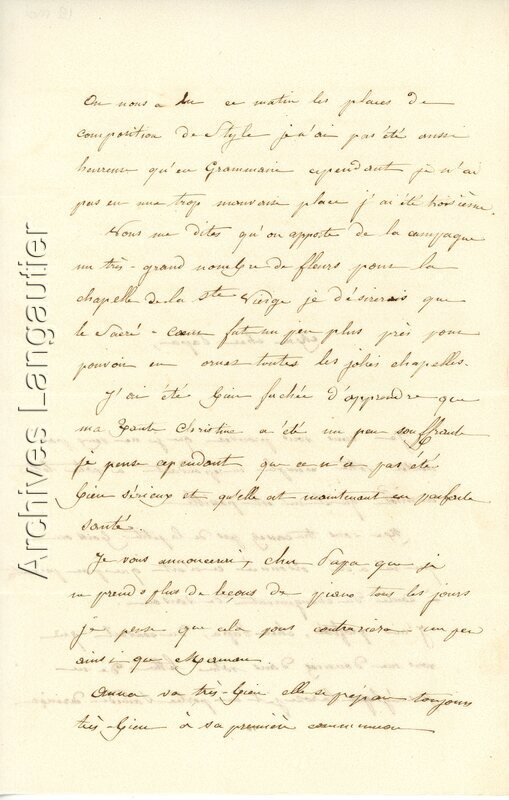 On nous a lu ce matin les places de
composition de Style je n'ai pas été aussi
heureuse qu'en Grammaire cependant je n'ai
pas eu une trop mauvaise place j'ai été troisième.
Vous me dites qu'on apporte de la campagne
un très-grand nombre de fleurs pour la
chapelle de la Ste Vierge je désirerais que
le Sacré-cœur fut un peu plus près pour
pouvoir en orner toutes les jolies chapelles.
J'ai été bien fachée d'apprendre que
ma Tante Christine a été un peu souffrante
je pense cependant que ce n'a pas été
bien sérieux et qu'elle est maintenant en parfaite
santé.
Je vous annoncerai, cher Papa que je
ne prends plus de leçons de piano tous les jours
je pense que cela vous contrariera un peu
ainsi que Maman
Anna va très-bien elle se prépare toujours
très-bien à sa première communion
Archives Langautier